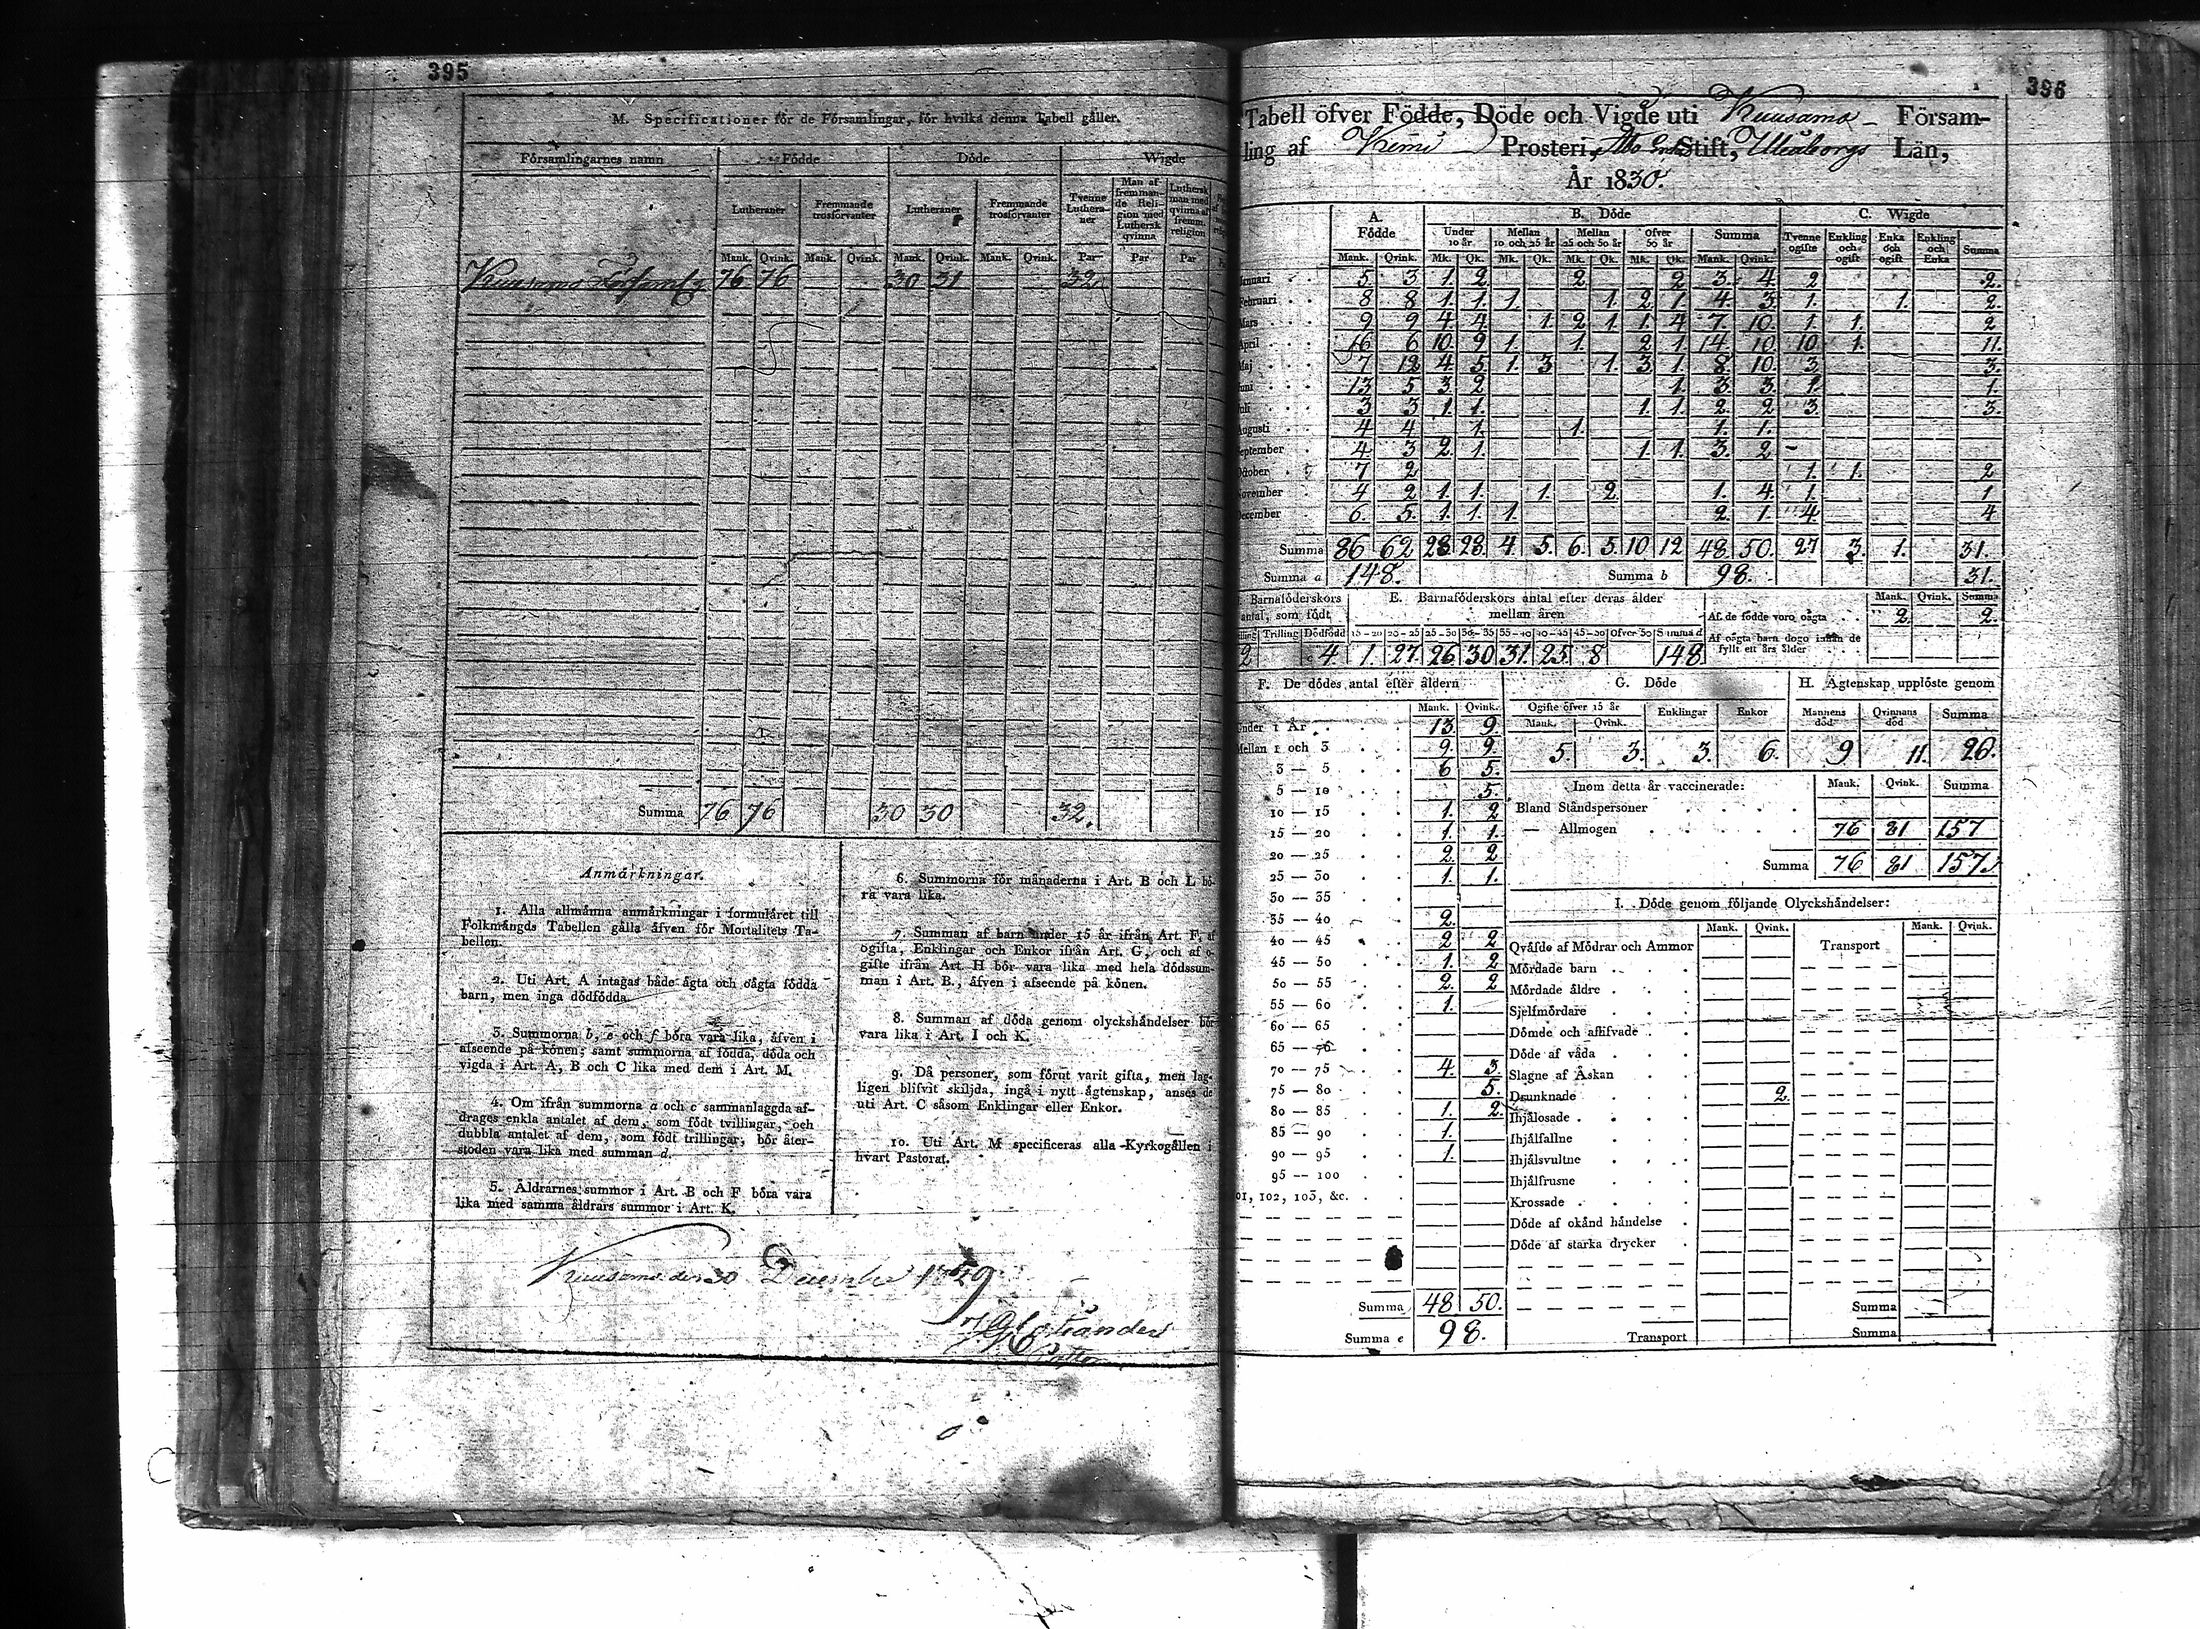 395
M. Specificationer för de Församlingar, för hvilka denna Tabell gäller.
Församlingarnes namn | Födde | Döde | Wigde
Lutheraner | Fremmande trosförvanter | Lutheraner | Fremmande trosförvanter | Tvenne Lutheraner | Man af fremmande Religion med Luthersk qvinna | Luthersk man med qvinna af fremm. religion
Mank. | Qvink. | Mank. | Qvink. | Mank. | Qvink. | Mank. | Qvink. | Par | Par | Par
Kuusamo 76 76 30 31 32
Summa 76 76 30 30 32.
Anmärkningar.
1. Alla allmänna anmärkningar i formuläret till
Folkmängds Tabellen gälla äfven för Mortalitets Ta-
bellen.
2. Uti Art. A intagas både ägta och oägta födda
barn, men inga dödfödda.
3. Summorna b, e och f böra vara lika, äfven i
afseende på könen; samt summorna af födda, döda och
vigda i Art. A, B och C lika med dem i Art. M.
4. Om ifrån summorna a och c sammanlaggda af-
drages enkla antalet af dem, som födt tvillingar, och
dubbla antalet af dem, som födt trillingar, bör åter-
stoden vara lika med summan d.
5. Åldrarnes summor i Art. B och F böra vara
lika med samma åldrars summor i Art. K.
6. Summorna för månaderna i Art. B och L bö-
ra vara lika.
7. Summan af barn under 15 år ifrån Art. F, af
ogifta, Enklingar och Enkor ifrån Art. G, och af o-
gifte ifrån Art. H bör vara lika med hela dödssum-
man i Art. B., äfven i afseende på könen.
8. Summan af döda genom olyckshändelser bör
vara lika i Art. I och K.
9. Då personer, som förut varit gifta, men lag-
ligen blifvit skiljda, ingå i nytt ägtenskap, anses de
uti Art. C såsom Enklingar eller Enkor.
10. Uti Art. M specificeras alla Kyrkogällen i
hvart Pastorat.
Kuusamo den 30 December 1829
396
Tabell öfver Födde, Döde och Vigde uti Kuusamo Försam-
ling af Kemi Prosteri, Åbo Stift, Uleåborgs Län,
År 1830.
A. Födde | B. Döde | C. Wigde
Under 10 år | Mellan 10 och 25 år | Mellan 25 och 50 år | Öfver 50 år | Summa | Tvenne ogifte | Enkling och ogift | Enka och ogift | Enkling och Enka | Summa
Mank. | Qvink. | Mk. | Qk. | Mk. | Qk. | Mk. | Qk. | Mk. | Qk. | Mank. | Qvink.
anuari 5 3 1. 2 2 2 3. 4. 2 2.
Februari 8 8 1. 1. 1. 1. 2 1. 4. 3. 1. 1. 2.
Mars 9 9 4. 4. 1. 2 1. 1. 4 7. 10. 1. 1. 2
April 16 6 10. 9 1. 1. 2 1. 14. 10. 10. 1. 11.
Maj 7 12 4. 5. 1. 3 1. 3 1. 8. 10. 3. 3.
uni 13 5 3. 2 1. 3 3. 1. 1.
uli 3 3 1. 1. 1. 1. 2. 2 3. 3.
Augusti 4 4 1. 1. 1. 1.
September 4 3 2. 1. 1. 1. 3. 2 -
October 7 2 1. 1. 2
November 4 2 1. 1. 1. 2. 1. 4. 1. 1
December 6. 5. 1. 1. 1. 2. 1. 4. 4
Summa 86 62 28 28. 4. 5. 6. 5. 10 12 48 50. 27 3. 1. 31.
Summa a 148. Summa b 98. 31.
Barnaföderskors antal, som födt
Trilling | Dödfödd
2 4
E. Barnaföderskors antal efter deras ålder mellan åren
15-20 | 20-25 | 25-30 | 30-35 | 35-40 | 40-45 | 45-50 | Öfver 50 | Summa d
1. 27. 26. 30 31. 25. 8 148
Mank. | Qvink. | Summa
Af de födde voro oägta 2. 2.
Af oägta barn dogo innan de
fyllt ett års ålder
F. De dödes antal efter åldern
Mank. | Qvink.
Under 1 År 13. 9.
Mellan 1 och 3 9. 9.
3 — 5 6 5.
5 — 10 5.
10 — 15 1. 2
15 — 20 1. 1.
20 — 25 2. 2
25 — 30 1. 1.
30 — 35
35 — 40 2.
40 — 45 2 2
45 — 50 1. 2
50 — 55 2. 2
55 — 60 1.
60 — 65
65 — 70
70 — 75 4. 3.
75 — 80 5.
80 — 85 1. 2.
85 — 90 1.
90 — 95 1.
95 — 100
01, 102, 103, &c.
Summa 48 50.
Summa e 98.
G. Döde
Ogifte öfver 15 år | Enklingar | Enkor
Mank. | Qvink.
5. 3. 3. 6.
H. Ägtenskap upplöste genom
Mannens död | Qvinnans död | Summa
9 11. 20.
Inom detta år vaccinerade: Mank. | Qvink. | Summa
Bland Ståndspersoner
— Allmogen 76 81 157
Summa 76 81 157
I. Döde genom följande Olyckshändelser:
Mank. | Qvink. | Mank. | Qvink.
Qväfde af Mödrar och Ammor Transport
Mördade barn
Mördade äldre
Sjelfmördare
Dömde och aflifvade
Döde af våda
Slagne af Åskan
Drunknade 2.
Ihjälosade
Ihjälfallne
Ihjälsvultne
Ihjälfrusne
Krossade
Döde af okänd händelse
Döde af starka drycker
Summa
Transport Summa